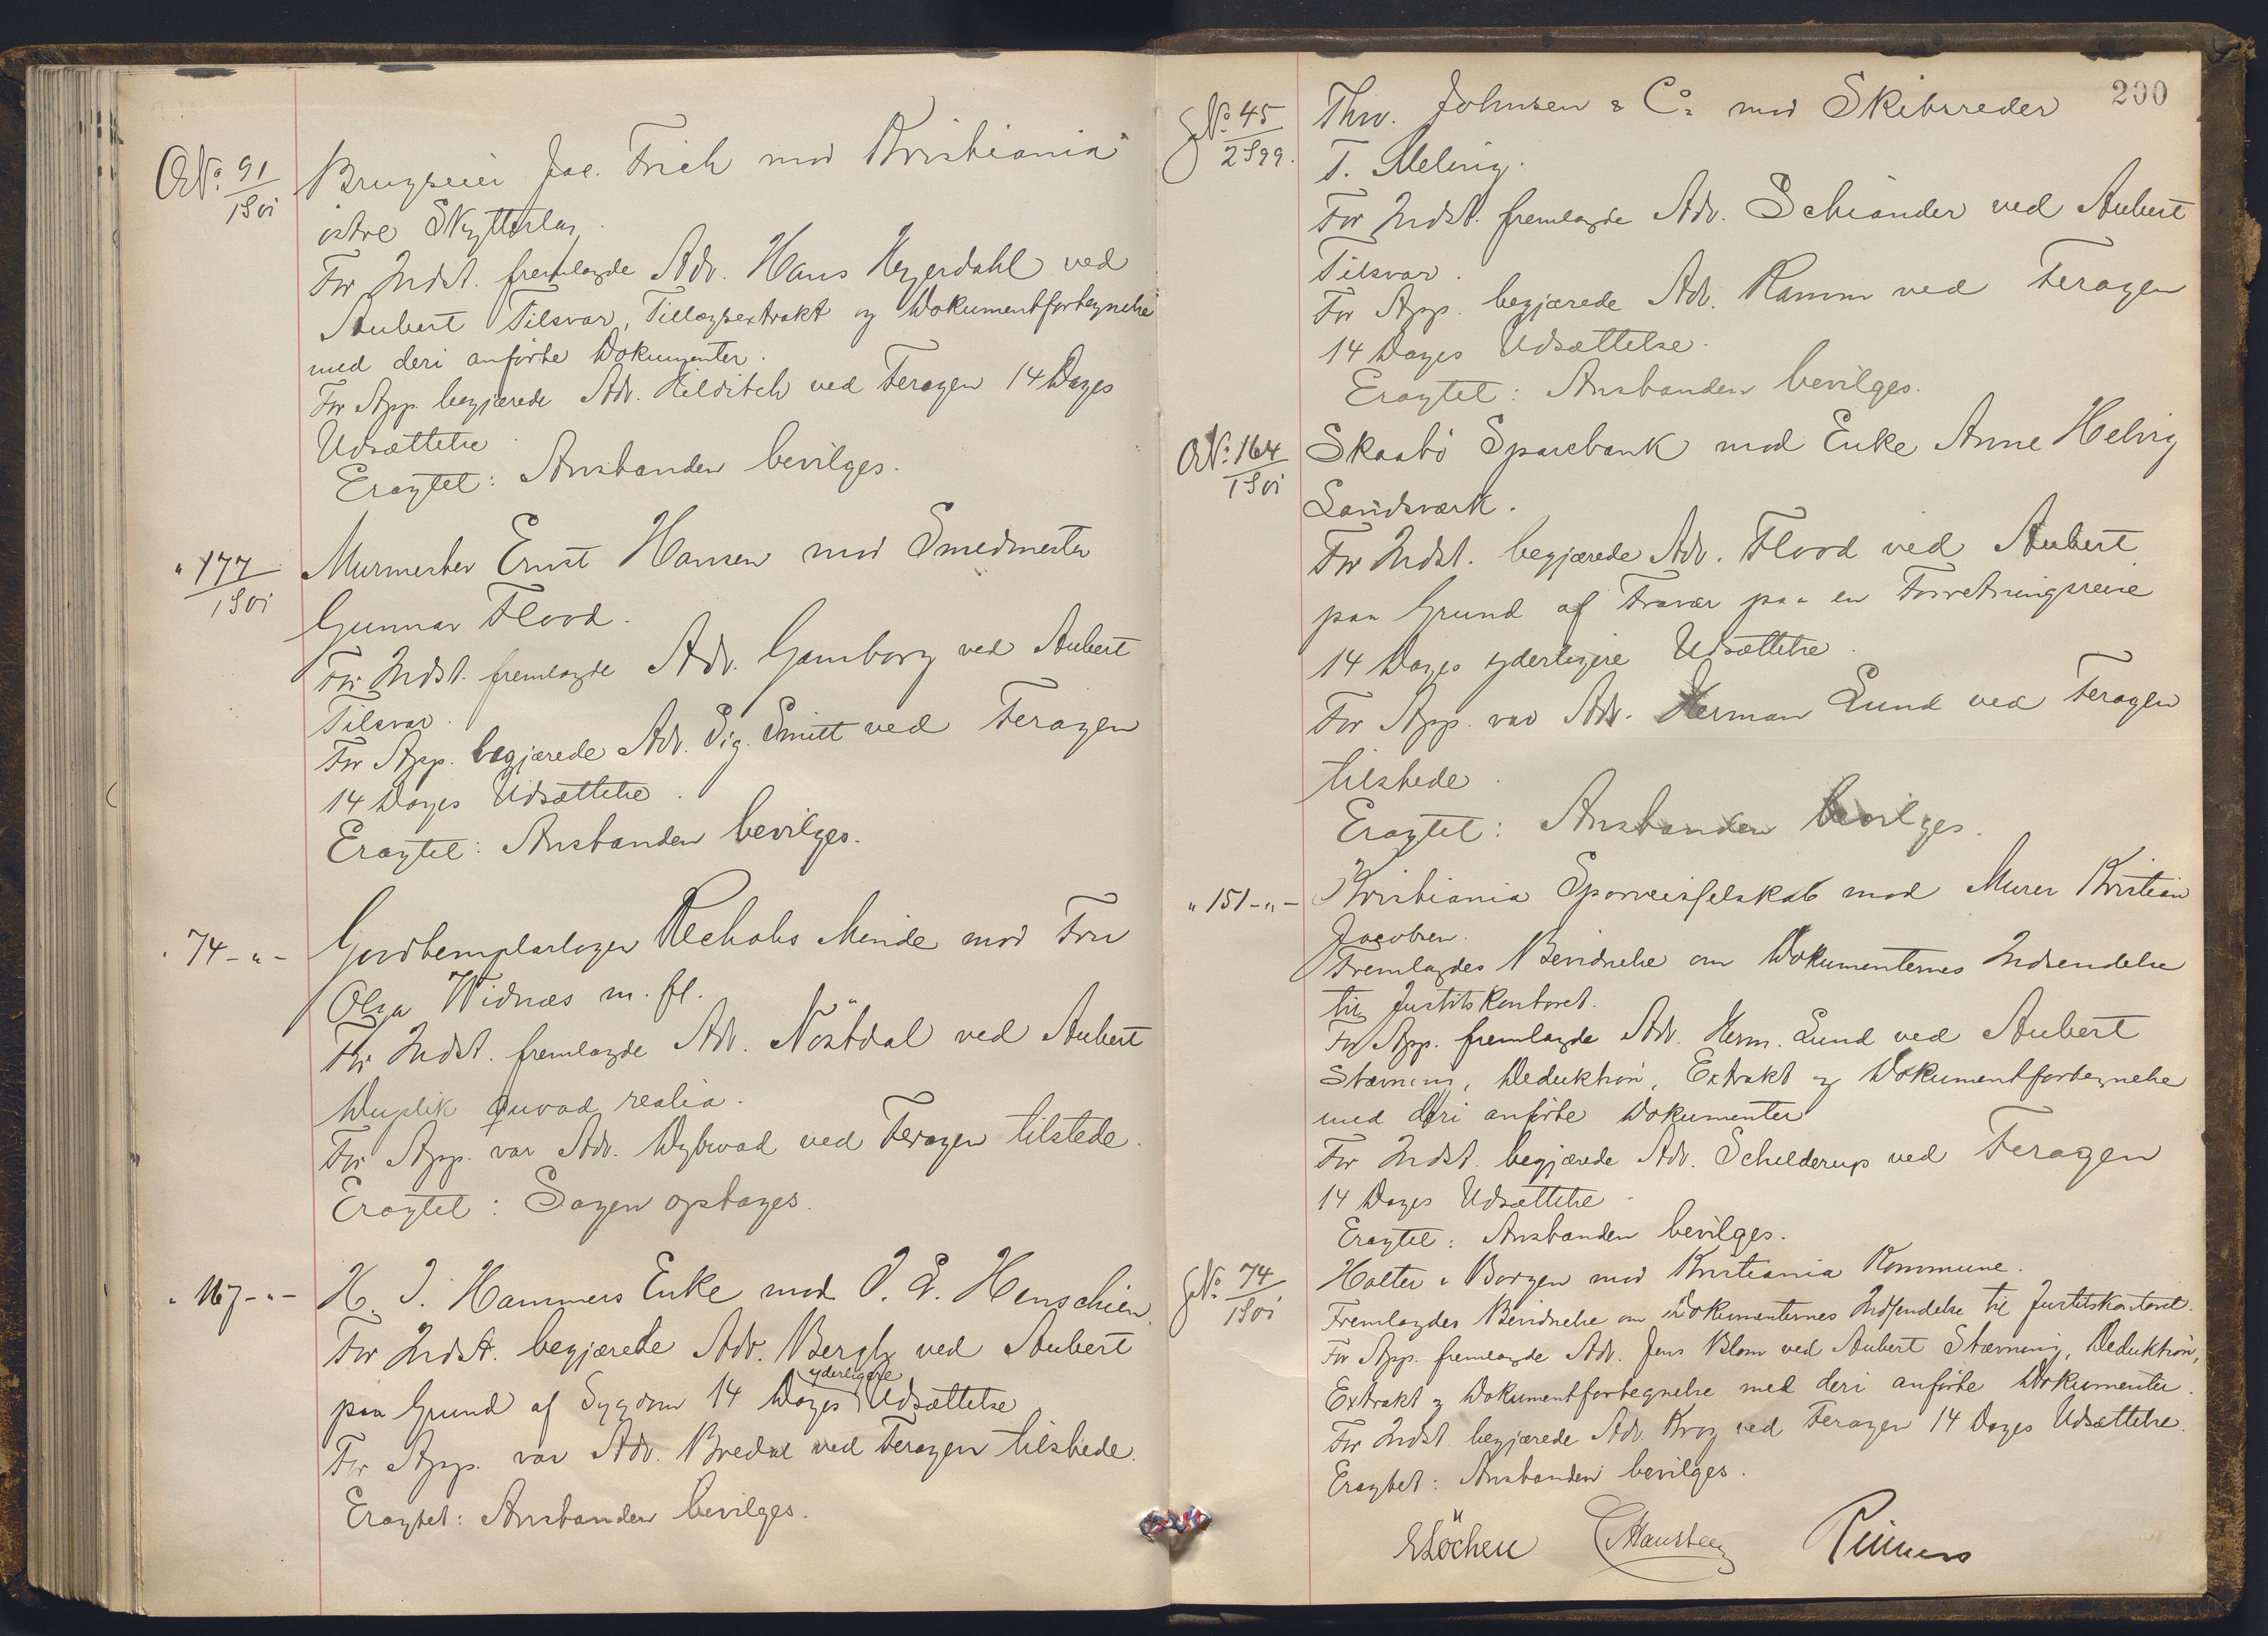 O.No. 91/1901
Brugseier Jac. Frich mod Kristiania
östre Skytterlag.
For Indst. fremlagde Adv. Hans Heyerdahl ved
Aubert Tilsvar, Tillægsextrakt og Dokumentfortegnelse
med deri anförte Dokumenter.
For App. begjærede Adv. Hilditch ved Feragen 14 Dages
Udsættelse.
Eragtet: Anstanden bevilges.
" 177/1901
Murmester Ernst Hansen mod Smedmester
Gunnar Flood.
For Indst. fremlagde Adv. Gamborg ved Aubert
Tilsvar.
For App. begjærede Adv. Sig. Smitt ved Feragen
14 Dages Udsættelse.
Eragtet: Anstanden bevilges.
" 74 - " -
Goodtemplarlogen Rechabs Minde mod Fru
Olga Widnæs m. fl.
For Indst. fremlagde Adv. Nöstdal ved Aubert
Duplik quoad realia.
For App. var Adv. Dybwad ved Feragen tilstede.
Eragtet: Sagen optages.
" 167 - " -
H. J. Hammers Enke mod J. L. Henschien.
For Indst. begjærede Adv. Bergh ved Aubert
paa Grund af Sygdom 14 Dages yderligere Udsættelse
For App. var Adv. Bredal ved Feragen tilstede.
Eragtet: Anstanden bevilges.
200
G.No. 45/2 S 99.
Thv. Johnsen & Co. mod Skibsreder
T. Meling.
For Indst. fremlagde Adv. Schiander ved Aubert
Tilsvar.
For App. begjærede Adv. Ramm ved Feragen
14 Dages Udsættelse.
Eragtet: Anstanden bevilges.
O.No. 164/1901
Skaabö Sparebank mod Enke Anne Helvig
Sandsværk.
For Indst. begjærede Adv. Flood ved Aubert
paa Grund af Fravær paa en Forretningsreise
14 Dages yderligere Udsættelse.
For App. var Adv. Herman Lund ved Feragen
tilstede.
Eragtet: Anstanden bevilges.
" 151 - " -
Kristiania Sporveisselskab mod Murer Kristian
Jacobsen.
Fremlagdes Bevidnelse om Dokumenternes Indsendelse
til Justitskontoret.
For App. fremlagde Adv. Herm. Lund ved Aubert
Stævning, Deduktion, Extrakt og Dokumentfortegnelse
med deri anförte Dokumenter
For Indst. begjærede Adv. Schelderup ved Feragen
14 Dages Udsættelse.
Eragtet: Anstanden bevilges.
G.No. 74/1901
Holter & Borgen mod Kristiania Kommune.
Fremlagdes Bevidnelse om Dokumenternes Indsendelse til Justitskontoret.
For App. fremlagde Adv. Jens Blom ved Aubert Stævning, Deduktion,
Extrakt og Dokumentfortegnelse med deri anförte Dokumenter.
For Indst. begjærede Adv. Krog ved Feragen 14 Dages Udsættelse.
Eragtet: Anstanden bevilges.
Löchen Hansteen